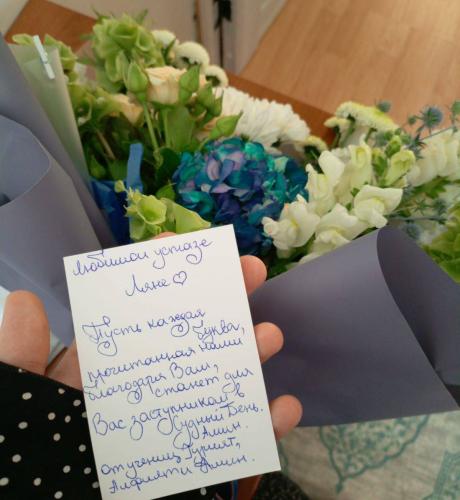 Любимой устазе
Ляне ♡
Пусть каждая
буква,
прочитанная нами
благодаря Вам,
станет для
Вас заступником в
Судный День.
Амин.
от учениц